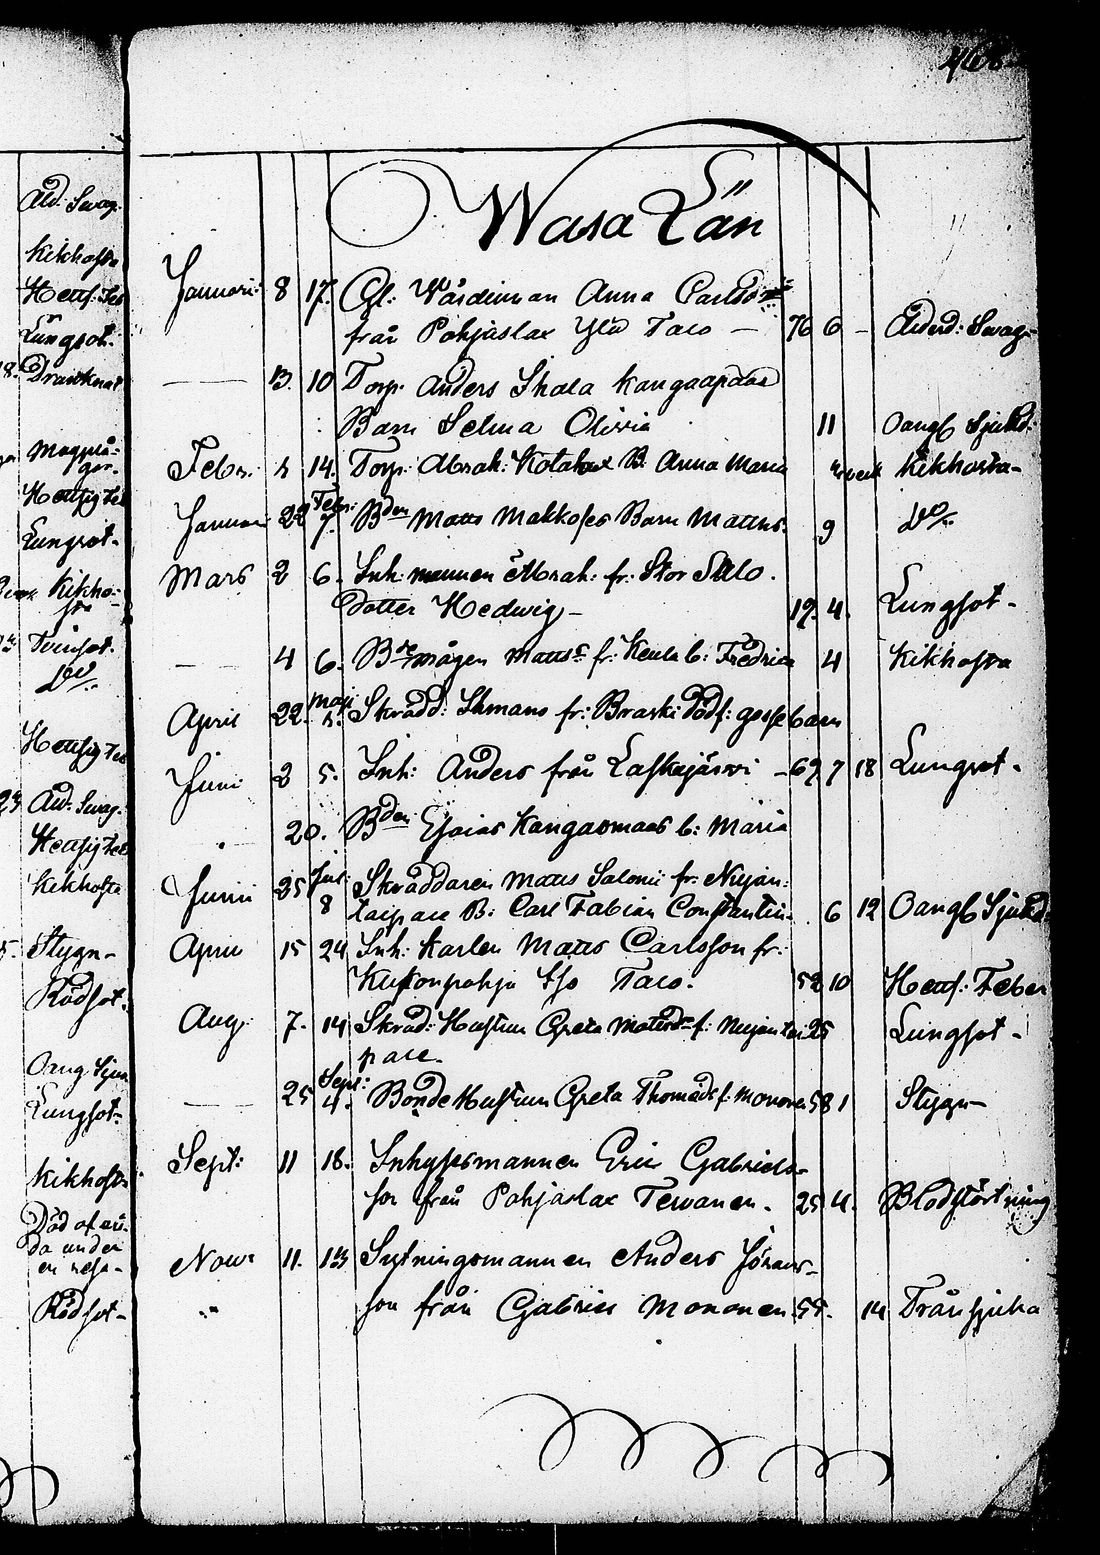 468
Åld: Swag:
Kikhosta
Hetts: Feb
Lungsot.
18. Dränknat
Magplå-
gor.
Hettsig feb
Lungsot.
Kikho-
sta
Tvinsot.
Do
Hettsig feb
23 Åld: Swag:
Hettsig feb
Kikhosta
Stygn-
Rödsot.
Oang Sjuk
Lungsot:
Kikhosta
Död af
da under
en resa-
Rödsot-
Wasa Län
Januari 8 17. Gl: Wärdinnan Anna Carlsdr
från Pohjaslax Yli Taco — 76 6 - Ålderd: Swag-
— 13. 10 Torp: Anders Skata Kangaapää
Barn Selma Olivia 11 Oangf Sjukd:
Febr: 14. Torp: Abrah: B: Anna Maria Kikhosta-
Januari 22 Febr: 7. Bden Matts Makkoses Barn Matths. 9 Do
Mars 2 6. Inh: mannen Abrah: fr: Stor
dotter Hedwig- 19. 4. Lungsot-
— 4 6. Matts fr: Keula b: Fredrica 4 Kikhosta
April 22. Maji Skrädd: fr: Braski Dödf: gossebarn
Juni 2 5. Inh: Anders från Laskajärwi - 69 7 18 Lungsot.
20. Bden Esaias Kangasmaas b: Maria
Junii 25 Jul: 8 Skräddaren Matts Salonii fr: Nujan:
laipace B: Carl Fabian Constantin. 6 12 Oangf Sjukd:
April 15 24 Inh: Karlen Matts Carlsson fr:
Taco. 52 10 Hetts: Feber
Aug: 7. 14 Skräd: Hustrun Greta Matsdr f: Nujanlai 25 Lungsot-
pace.
— 25 Sept: 4. Bonde Hustrun Greta Thomasdr f: Mononen 58 1 Stygn-
Sept: 11 18. Inhysesmannen Eric Gabriels-
son från Pohjaslax Terwanen. 25 4. Blodstörtning
Now: 11. 13 Sytningsmannen Anders Jörans-
son från Gabriel Mononen. 55. 14 Tränsjuka